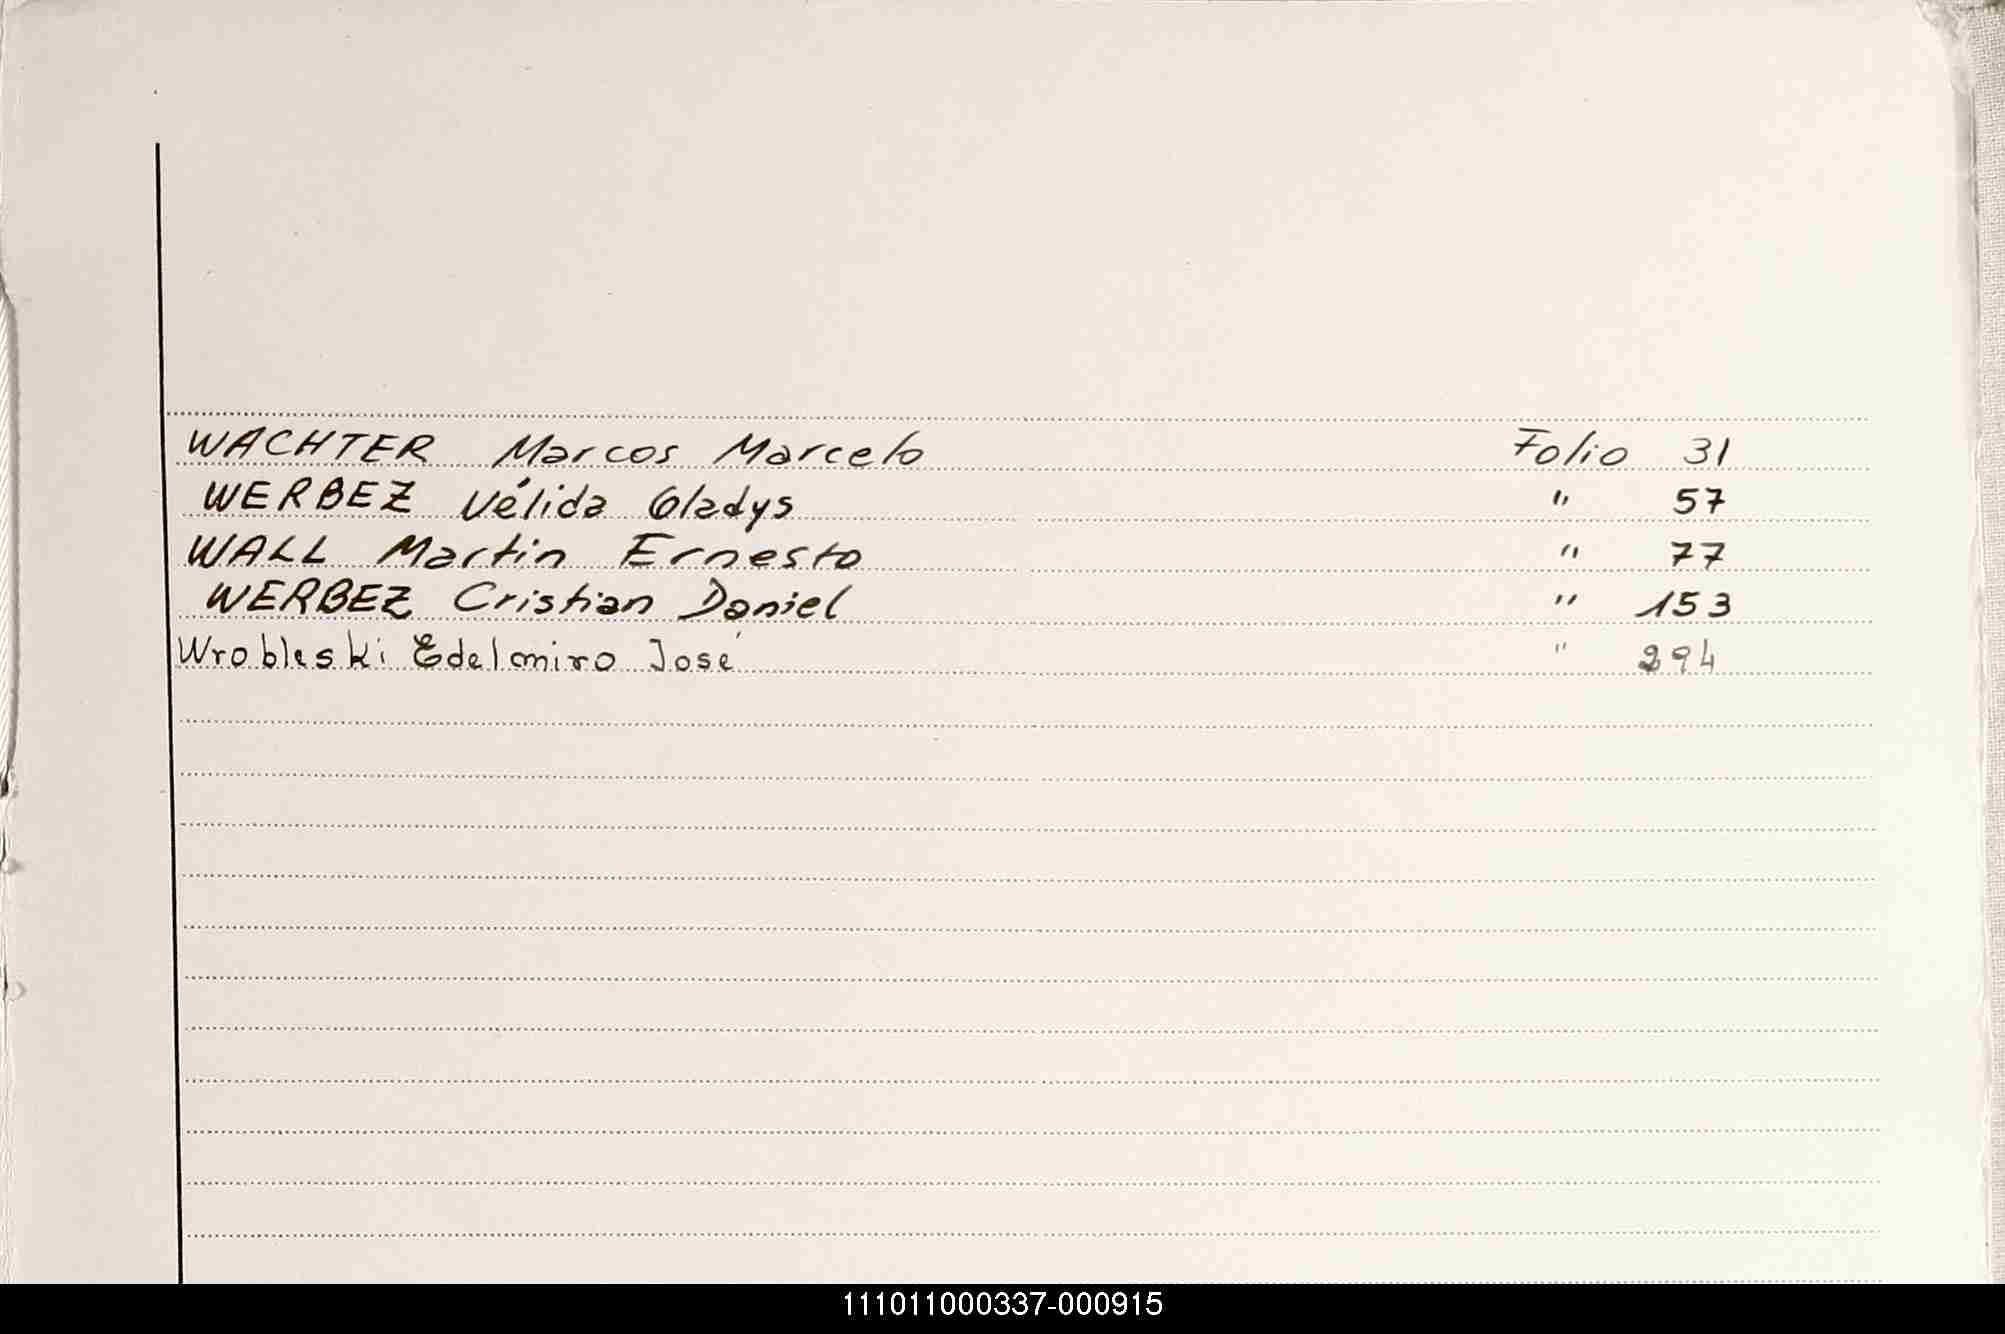 WACHTER Marcos Marcelo Folio 31
WERBEZ Vélida Gladys " 57
WALL Martin Ernesto " 77
WERBEZ Cristian Daniel " 153
Wrobleski Edelmiro José " 294
111011000337-000915